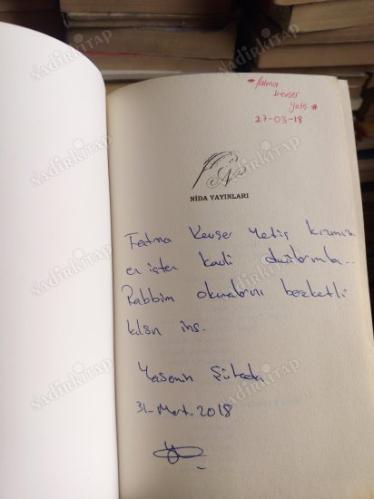 *fatma
kevser
yetiş *
27-03-18
NİDA YAYINLARI
Fatma Kevser Yetiş kızımıza
en içten kalbi dualarımla...
Rabbim okumalarını bereketli
kılsın inş.
Yasemin
31-Mart-2018
NadirKitap